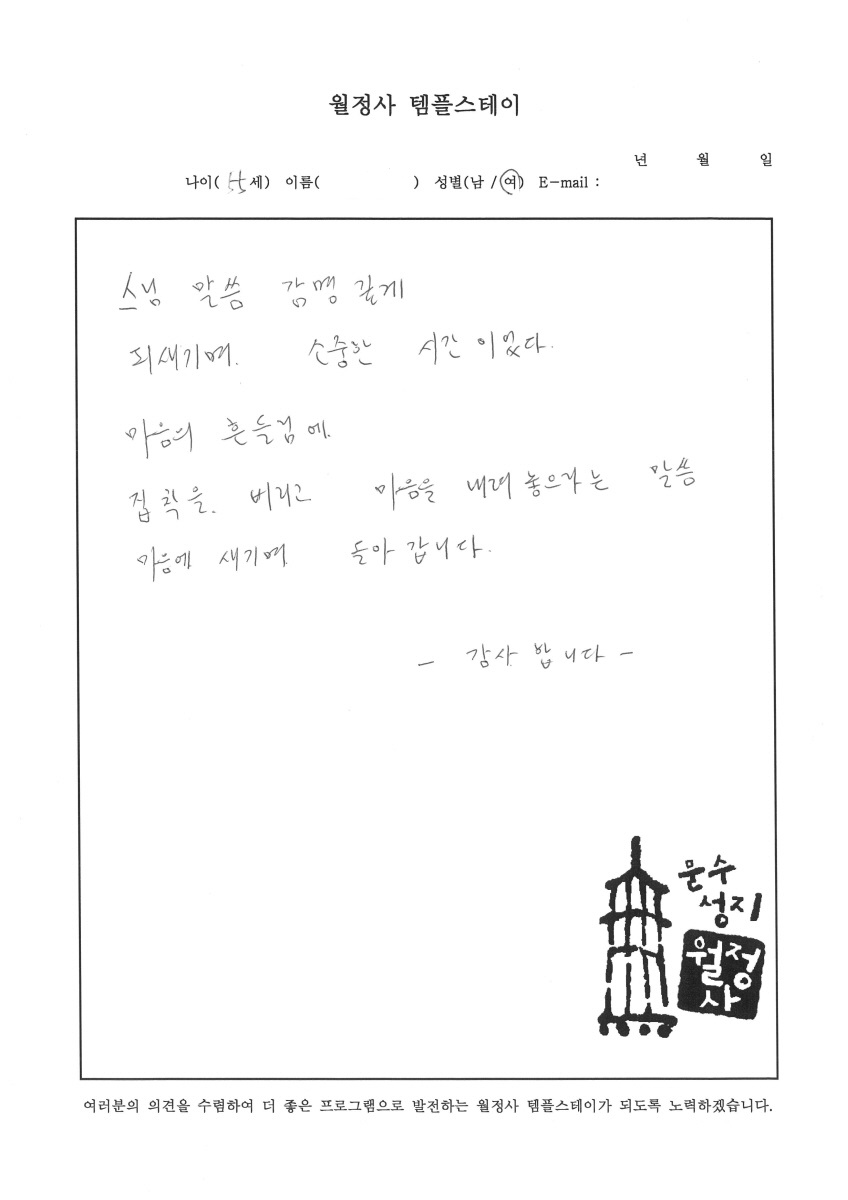 월정사 템플스테이
년 월 일
나이( 55 세) 이름( ) 성별(남 / 여) E-mail :
스님 말씀 감명 깊게
되새기며. 소중한 시간 이었다.
마음의 흔들림에.
집착을. 버리고 마음을 내려 놓으라는 말씀
마음에 새기며 돌아 갑니다.
- 감사 합니다 -
문수
성지
월정
사
여러분의 의견을 수렴하여 더 좋은 프로그램으로 발전하는 월정사 템플스테이가 되도록 노력하겠습니다.